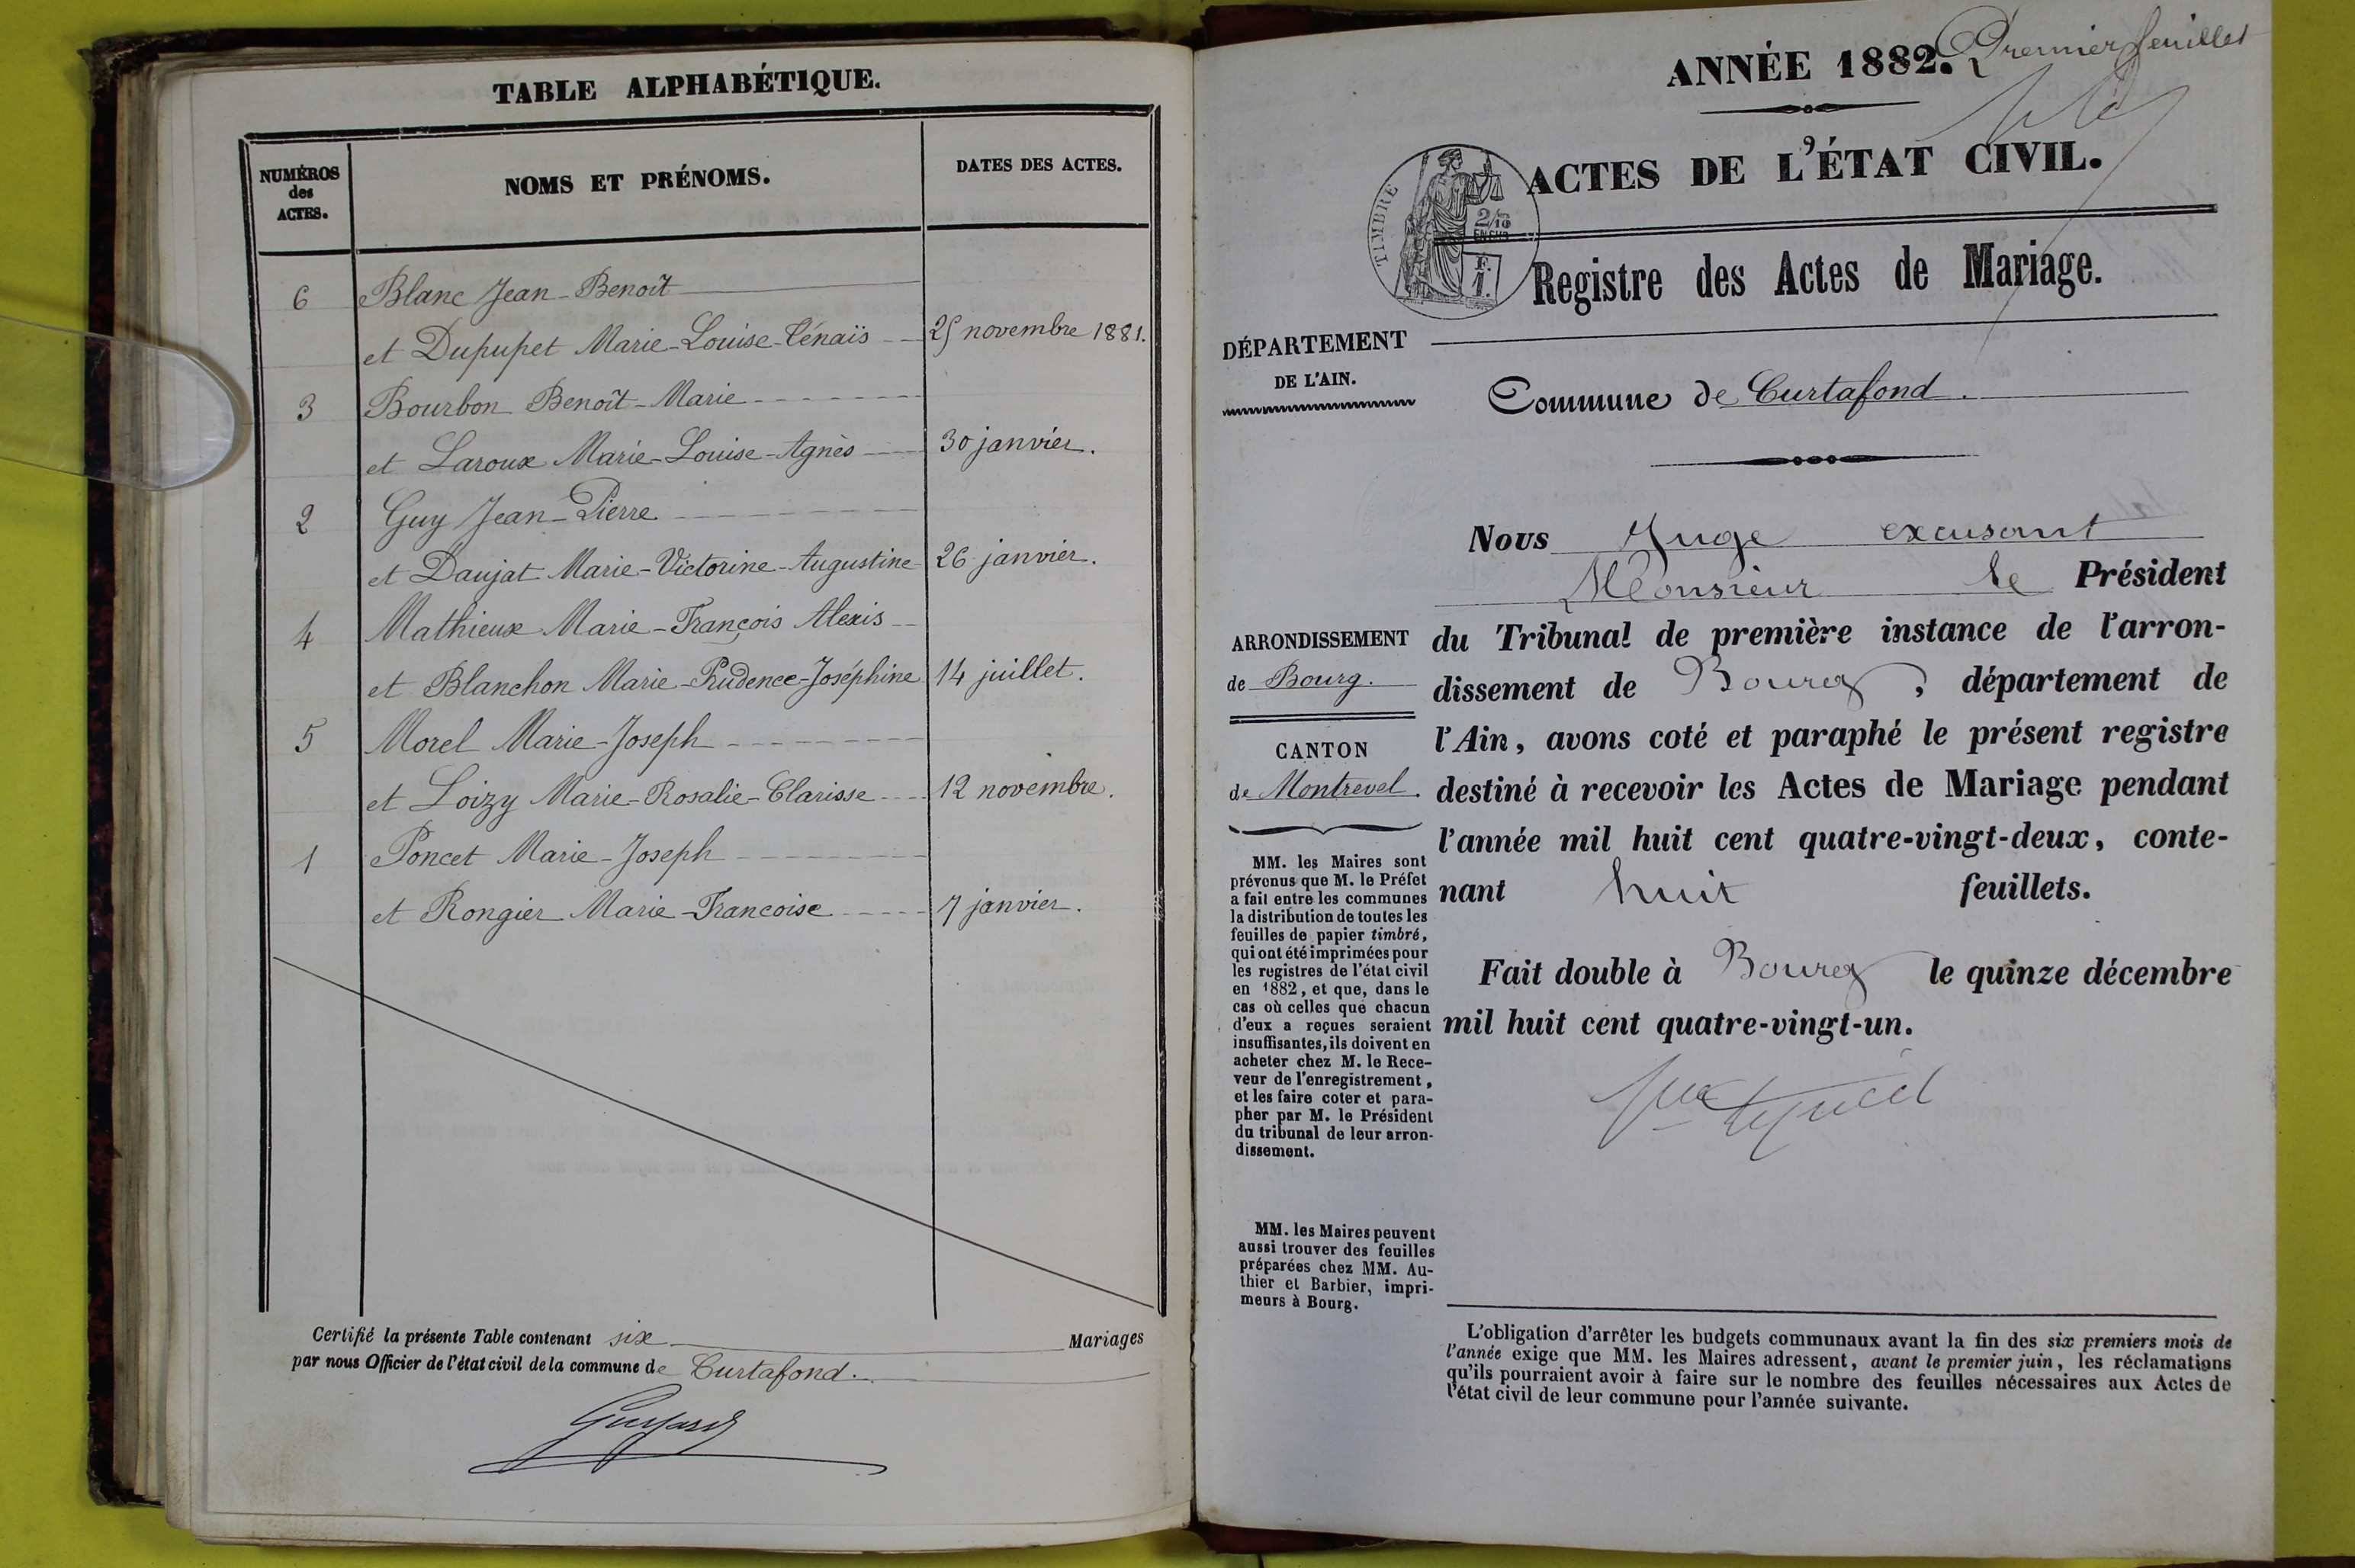 TABLE ALPHABÉTIQUE.
NUMÉROS des ACTES.
NOMS ET PRÉNOMS.
DATES DES ACTES.
6 Blanc Jean-Benoît
et Dupupet Marie-Louise-Cénaïs 25 novembre 1881.
3 Bourbon Benoît-Marie
et Laroux Marie-Louise-Agnès 30 janvier.
2 Guy Jean-Pierre
et Daujat Marie-Victorine-Augustine 26 janvier.
4 Mathieux Marie-François Alexis
et Blanchon Marie-Prudence-Joséphine 14 juillet.
5 Morel Marie-Joseph
et Loizy Marie-Rosalie-Clarisse 12 novembre.
1 Poncet Marie-Joseph
et Rongier Marie-Francoise 7 janvier.
Certifié la présente Table contenant six Mariages
par nous Officier de l'état civil de la commune de Curtafond.
Premier feuillet
ANNÉE 1882.
ACTES DE L'ÉTAT CIVIL.
TIMBRE
2/10
EN SUS
F.
1.
Registre des Actes de Mariage.
DÉPARTEMENT
DE L'AIN.
Commune de Curtafond.
Nous Juge excusant
Monsieur le Président
du Tribunal de première instance de l'arron-
dissement de Bourg, département de
l'Ain, avons coté et paraphé le présent registre
destiné à recevoir les Actes de Mariage pendant
l'année mil huit cent quatre-vingt-deux, conte-
nant huit feuillets.
Fait double à Bourg le quinze décembre
mil huit cent quatre-vingt-un.
ARRONDISSEMENT
de Bourg.
CANTON
de Montrevel.
MM. les Maires sont
prévenus que M. le Préfet
a fait entre les communes
la distribution de toutes les
feuilles de papier timbré,
qui ont été imprimées pour
les registres de l'état civil
en 1882, et que, dans le
cas où celles que chacun
d'eux a reçues seraient
insuffisantes, ils doivent en
acheter chez M. le Rece-
veur de l'enregistrement,
et les faire coter et para-
pher par M. le Président
du tribunal de leur arron-
dissement.
MM. les Maires peuvent
aussi trouver des feuilles
préparées chez MM. Au-
thier et Barbier, impri-
meurs à Bourg.
L'obligation d'arrêter les budgets communaux avant la fin des six premiers mois de
l'année exige que MM. les Maires adressent, avant le premier juin, les réclamations
qu'ils pourraient avoir à faire sur le nombre des feuilles nécessaires aux Actes de
l'état civil de leur commune pour l'année suivante.